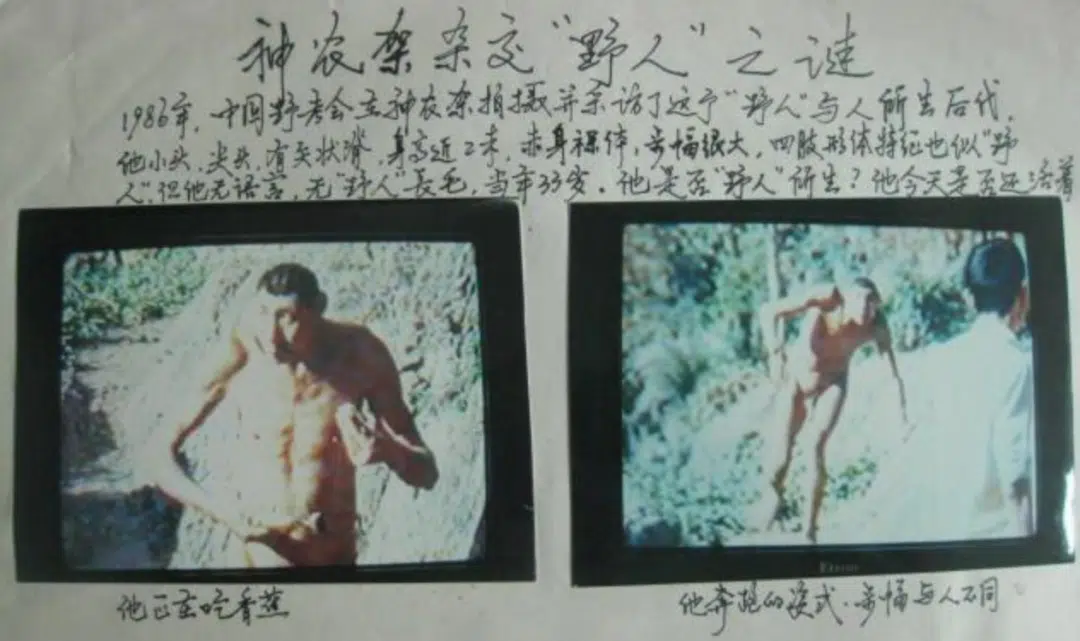 神农架杂交“野人”之谜
1986年，中国野考会在神农架拍摄并采访了这个“野人”与人所生后代，
他小头，尖头，有矢状脊，身高近2米，赤身裸体，步幅很大，四肢形体特征也似“野
人”，但他无语言，无“野人”长毛，当年33岁。他是否“野人”所生？他今天是否还活着
他正在吃香蕉
他奔跑的姿式，步幅与人不同